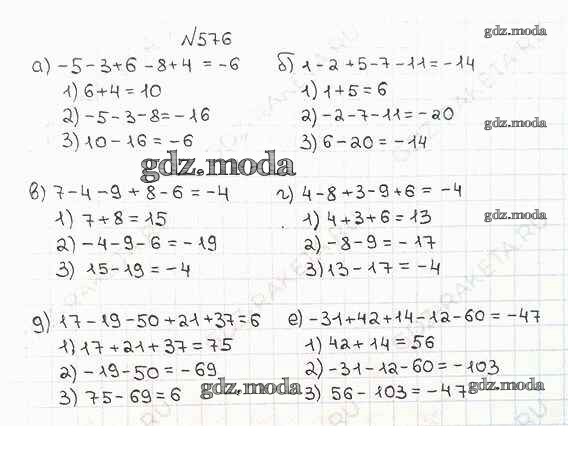 №576
gdz.moda
а) -5-3+6-8+4 = -6
1) 6+4=10
2) -5-3-8=-16
3) 10-16=-6
б) 1-2+5-7-11=-14
1) 1+5=6
2) -2-7-11=-20
3) 6-20=-14
gdz.moda
gdz.moda
в) 7-4-9+8-6=-4
1) 7+8=15
2) -4-9-6=-19
3) 15-19=-4
г) 4-8+3-9+6=-4
1) 4+3+6=13
2) -8-9=-17
3) 13-17=-4
gdz.moda
д) 17-19-50+21+37=6
1) 17+21+37=75
2) -19-50=-69
3) 75-69=6
gdz.moda
е) -31+42+14-12-60=-47
1) 42+14=56
2) -31-12-60=-103
3) 56-103=-47
gdz.moda